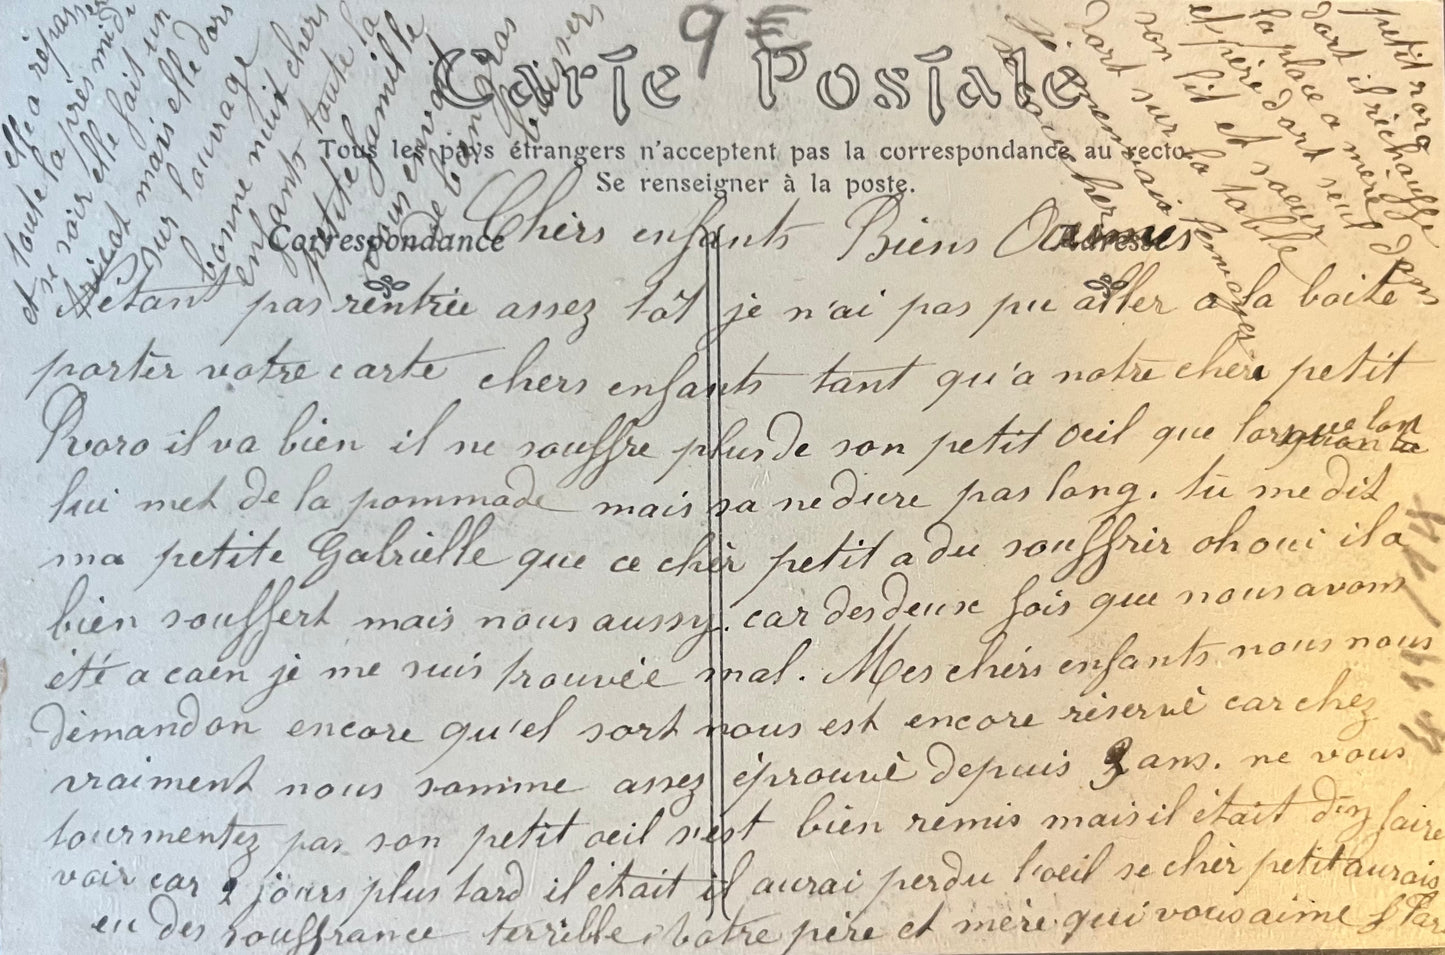 9 €
Carte Postale
Tous les pays étrangers n'acceptent pas la correspondance au recto
Se renseigner à la poste.
Correspondance
Adresse
Chèrs enfants Biens aimés
N'êtant pas rentrée assez tôt je n'ai pas pu aller a la boite
porter votre carte chers enfants tant qu'a notre chère petit
Roro il va bien il ne souffre plus de son petit oeil que lorsque lon
lui met de la pommade mais sa ne dure pas long. tu me dit
ma petite Gabrielle que ce chèr petit a du souffrir oh oui il a
bien souffert mais nous aussy. car des deux fois que nous avons
été a caen je me suis trouvée mal. Mes chèrs enfants nous nous
demandon encore qu'el sort nous est encore réservé car chez
vraiment nous somme assez éprouvé depuis 3 ans. ne vous
tourmentez pas son petit oeil s'est bien remis mais il était d'y faire
voir car 2 jours plus tard il était il aurai perdu l'oeil se chèr petit aurais
eu des souffrance terrible. votre père et mère qui vous aime
petit roro
dort il réchauffe
la place a mère
et père dort seul dans
son lit et soeur
dort sur la table
je m'en vais l'envoyer
se coucher
elle a repassé
toute la près midi
et se soir elle fait un
tricot mais elle dors
sur louvrage
bonne nuit chers
enfants toute la
petite famille
vous envoit
de bon gras
baisers